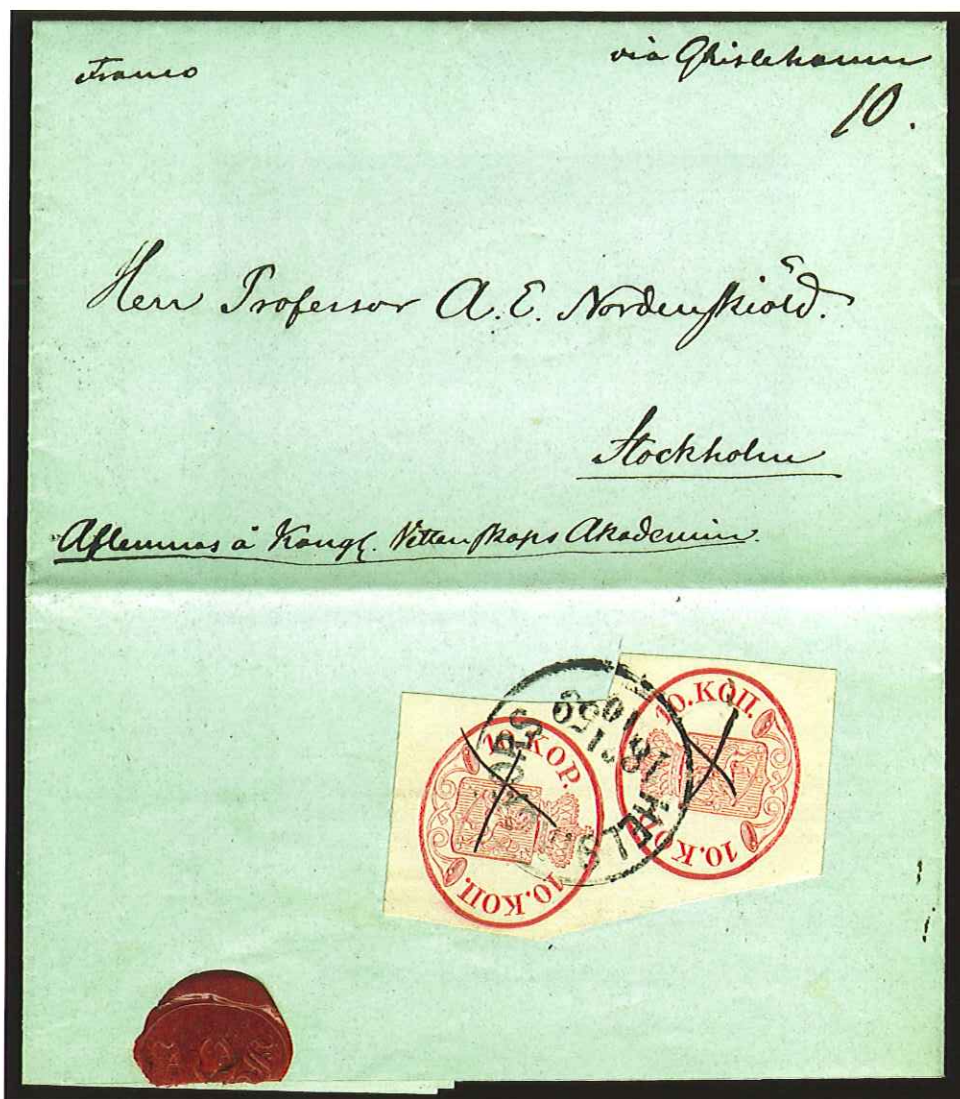 Franco
via Ghislehamn
10.
Herr Professor A. E. Nordenskiöld.
Stockholm
Aflemnas å Kongl. Vittenskaps Akademin.
10. КОП.
10. KOP.
10. KOP.
10. КОП.
HELS
FORS
1859